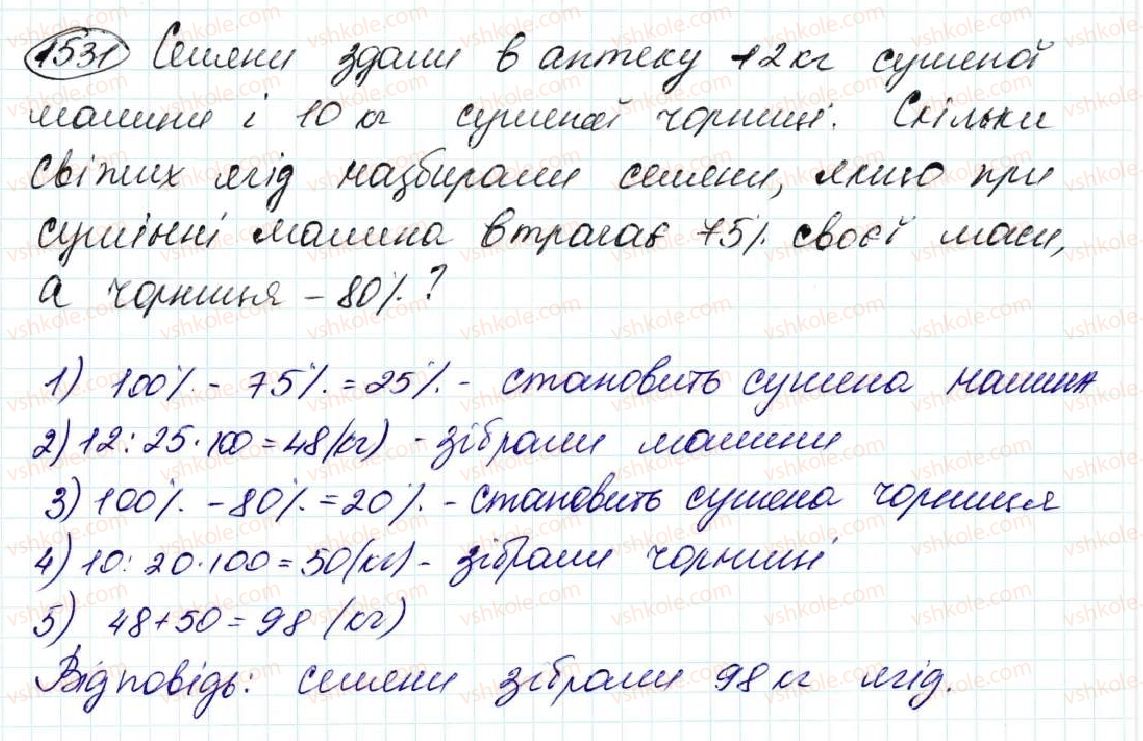 1531 Селяни здали в аптеку 12 кг сушеної
малини і 10 кг сушеної чорниці. Скільки
свіжих ягід назбирали селяни, якщо при
сушінні малина втрачає 75% своєї маси,
а чорниця – 80%?
1) 100% - 75% = 25% - становить сушена малина
2) 12 : 25 · 100 = 48 (кг) - зібрали малини
3) 100% - 80% = 20% - становить сушена чорниця
4) 10 : 20 · 100 = 50 (кг) - зібрали чорниці
5) 48 + 50 = 98 (кг)
Відповідь: селяни зібрали 98 кг ягід.